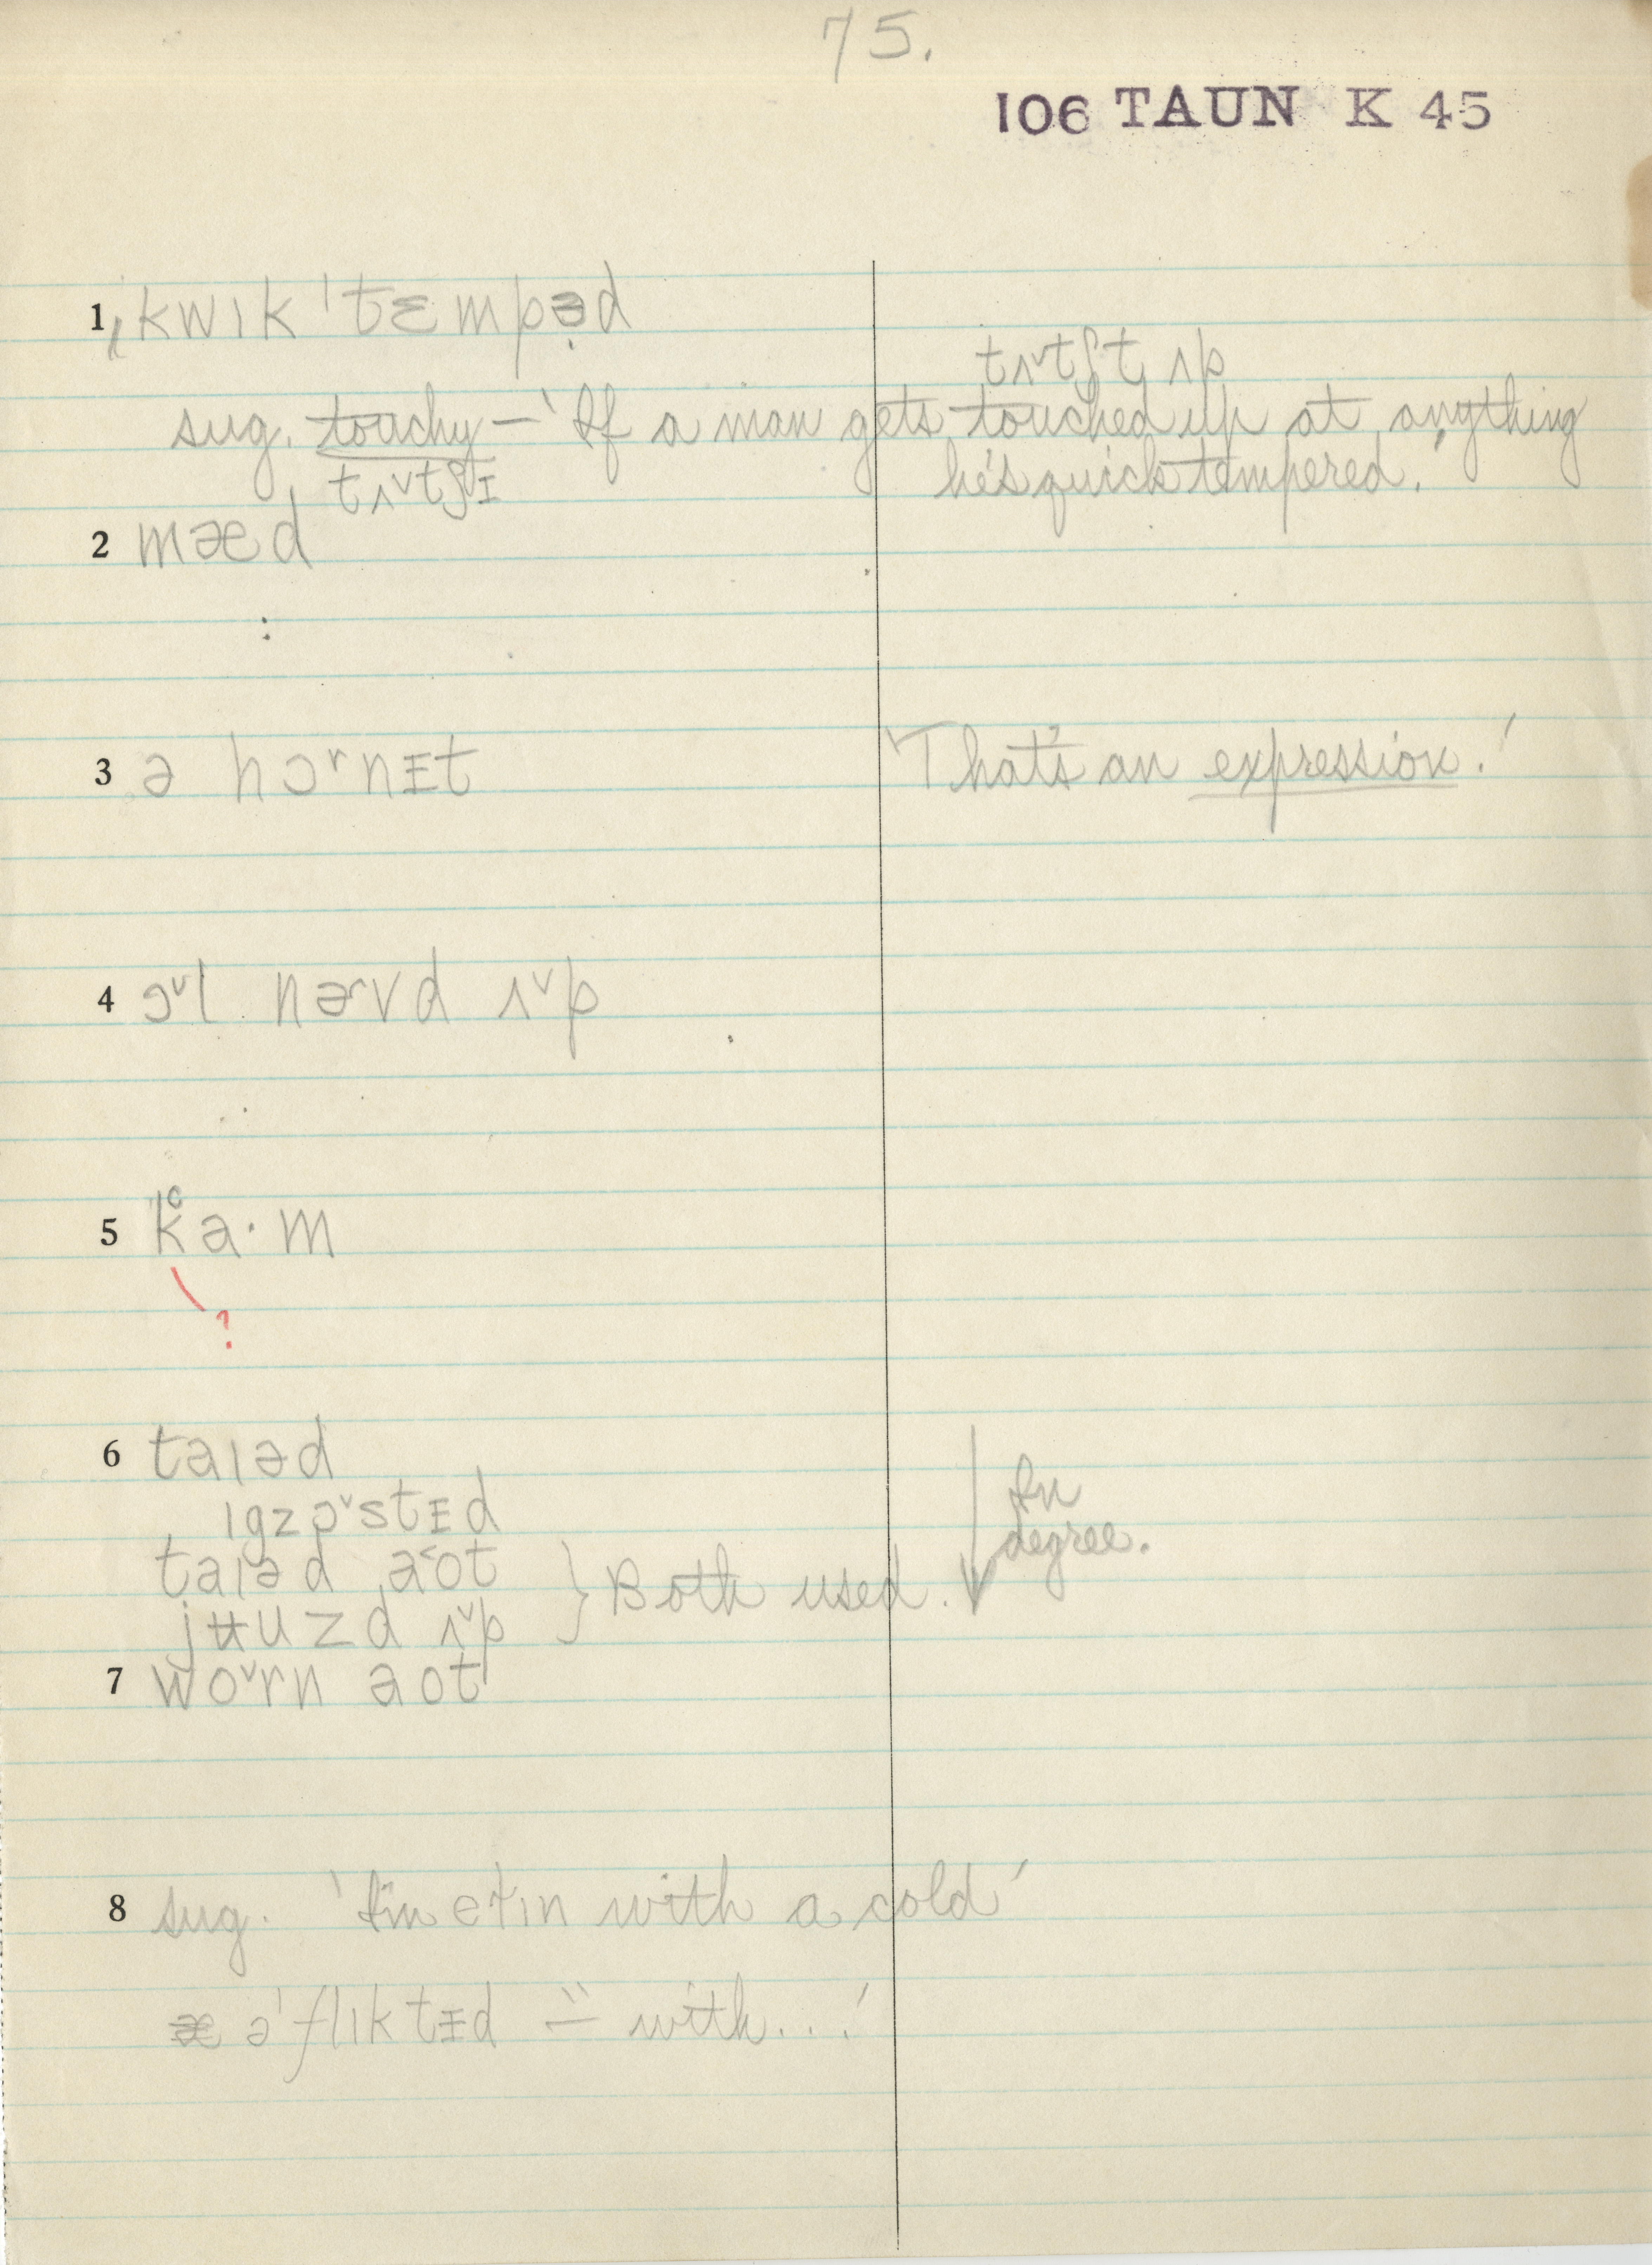 75.
106 TAUN K 45
1 ˌkwɪk ˈtɛmpəd
tʌ˅tʃt ʌp
sug. touchy — 'If a man gets touched up at anything
he's quick tempered.'
tʌ˅tʃɪ
2 mæd
3 ə hɔʳnɪt 'That's an expression.'
4 ɔ˅l nɚvd ʌ˅p
5 kʿa·m
?
6 taɪəd
ɪgzɔ˅stɪd
taɪəd a˂ot
jʉuzd ʌ˅p } Both used. In degree.
7 wo˅rn aot
8 sug. 'I'm etɪn with a cold'
əˈflɪktɪd — with...'